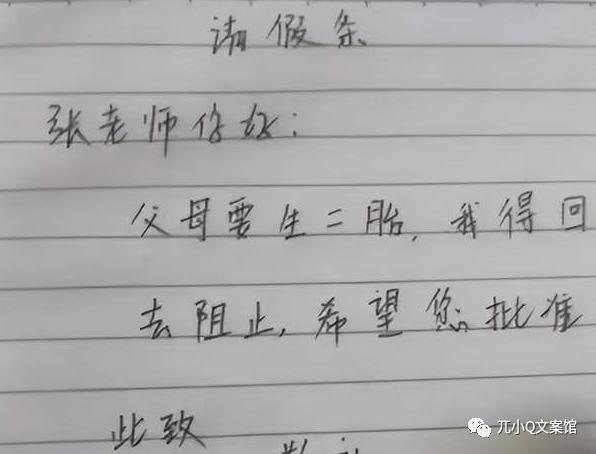 请假条
张老师你好：
父母要生二胎，我得回
去阻止，希望您批准
此致
兀小Q文案馆